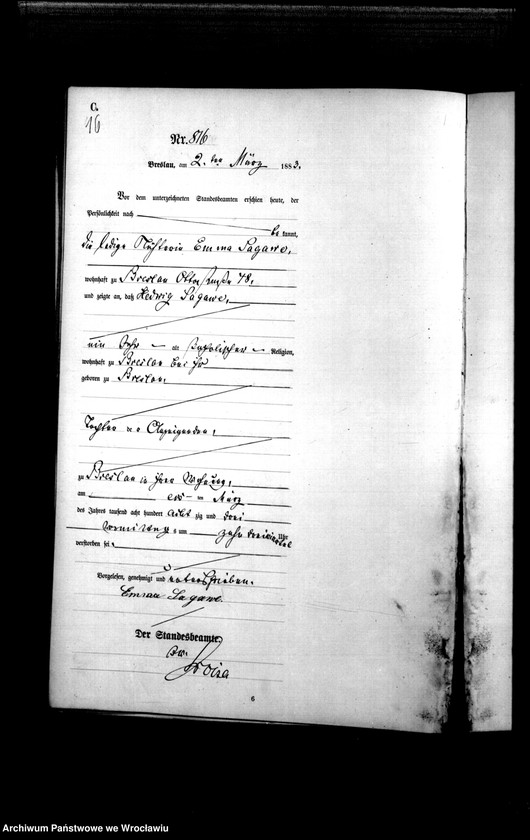 C.
16
Nr. 816
Breslau, am 2. ten März 1883.
Vor dem unterzeichneten Standesbeamten erschien heute, der
Persönlichkeit nach
be kannt,
die ledige Emma Sagawe,
wohnhaft zu Breslau Ottostraße 48,
und zeigte an, daß Hedwig Sagawe,
ein Jahr alt katholischer Religion,
wohnhaft zu Breslau bei ihr
geboren zu Breslau,
Tochter der Anzeigenden,
zu Breslau in ihrer Wohnung,
am ten März
des Jahres tausend acht hundert acht zig und drei
Vormittags um zehn dreiviertel Uhr
verstorben sei.
Vorgelesen, genehmigt und unterschrieben.
Emma Sagawe.
Der Standesbeamte.
6
Archiwum Państwowe we Wrocławiu